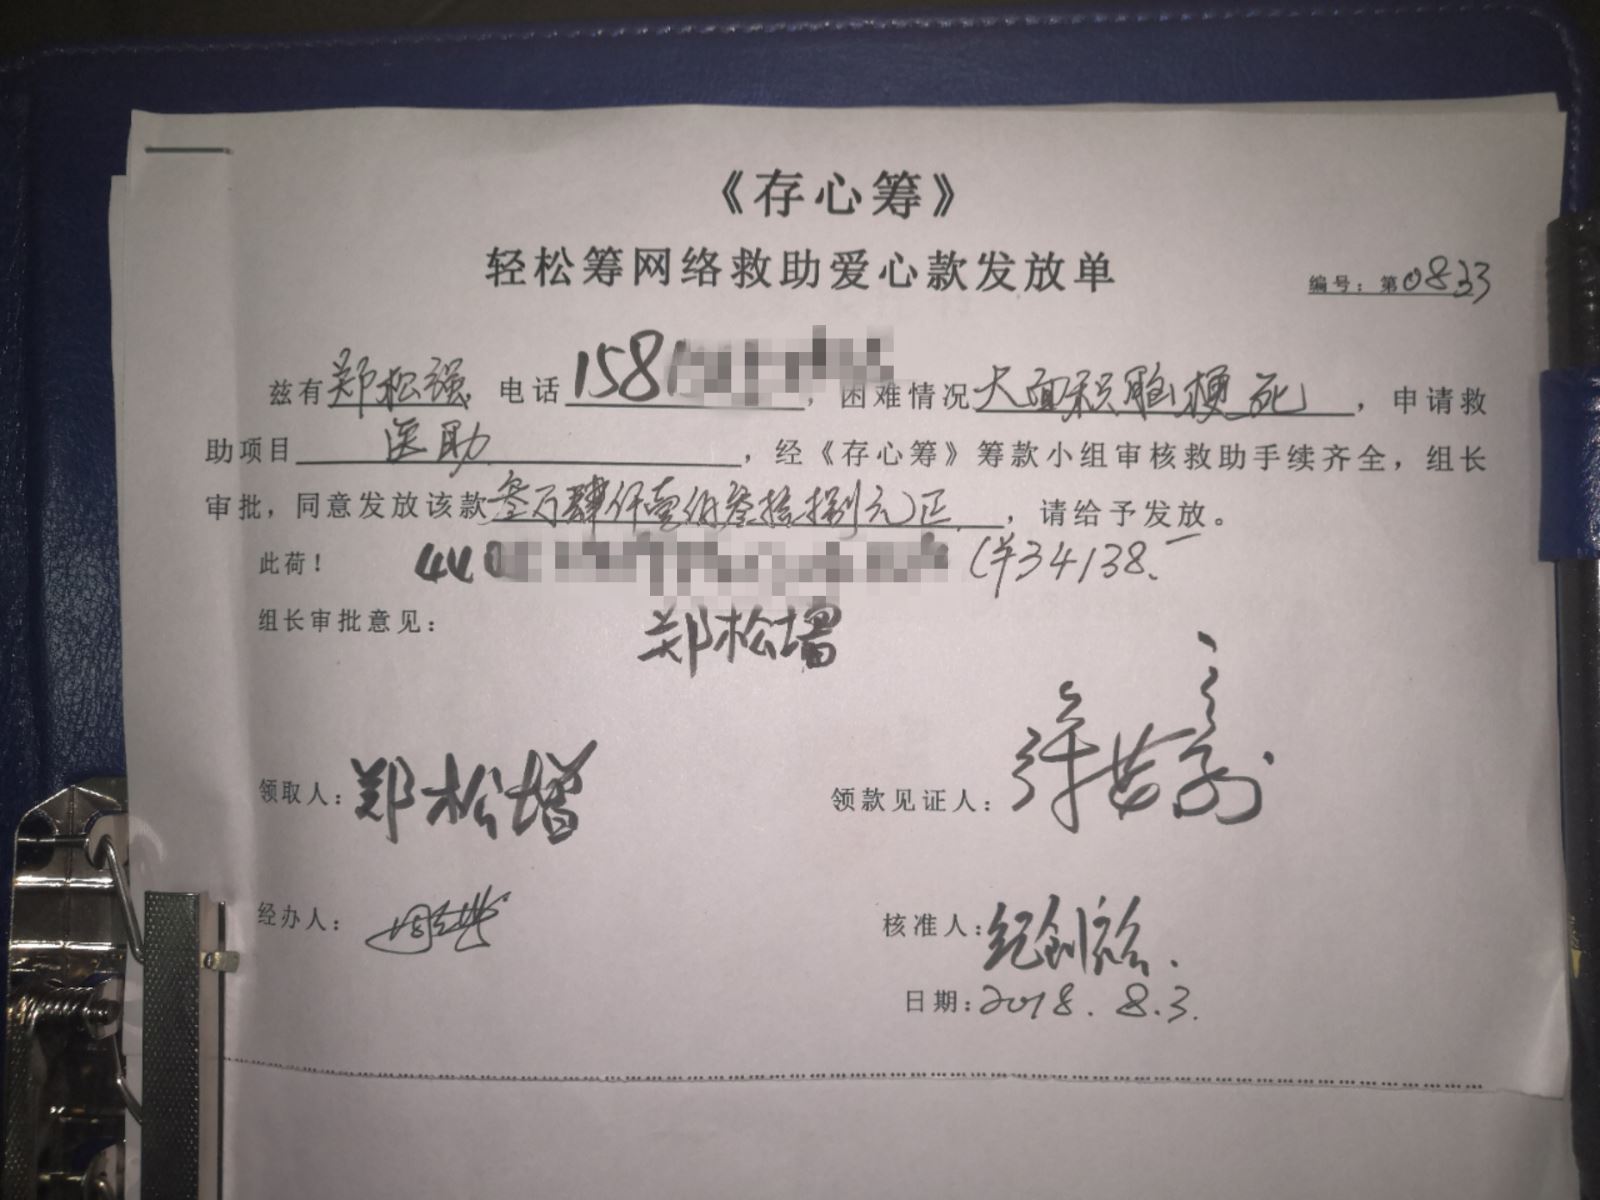 《存心筹》
轻松筹网络救助爱心款发放单
编号：第0833
兹有郑松强 电话158 ，困难情况大面积脑梗死，申请救
助项目医助，经《存心筹》筹款小组审核救助手续齐全，组长
审批，同意发放该款叁万肆仟壹佰叁拾捌元正，请给予发放。
此荷！ 44 (羊34138.一
组长审批意见：
郑松增
领取人：郑松增
领款见证人：
经办人：
核准人：纪创
日期：2018.8.3.